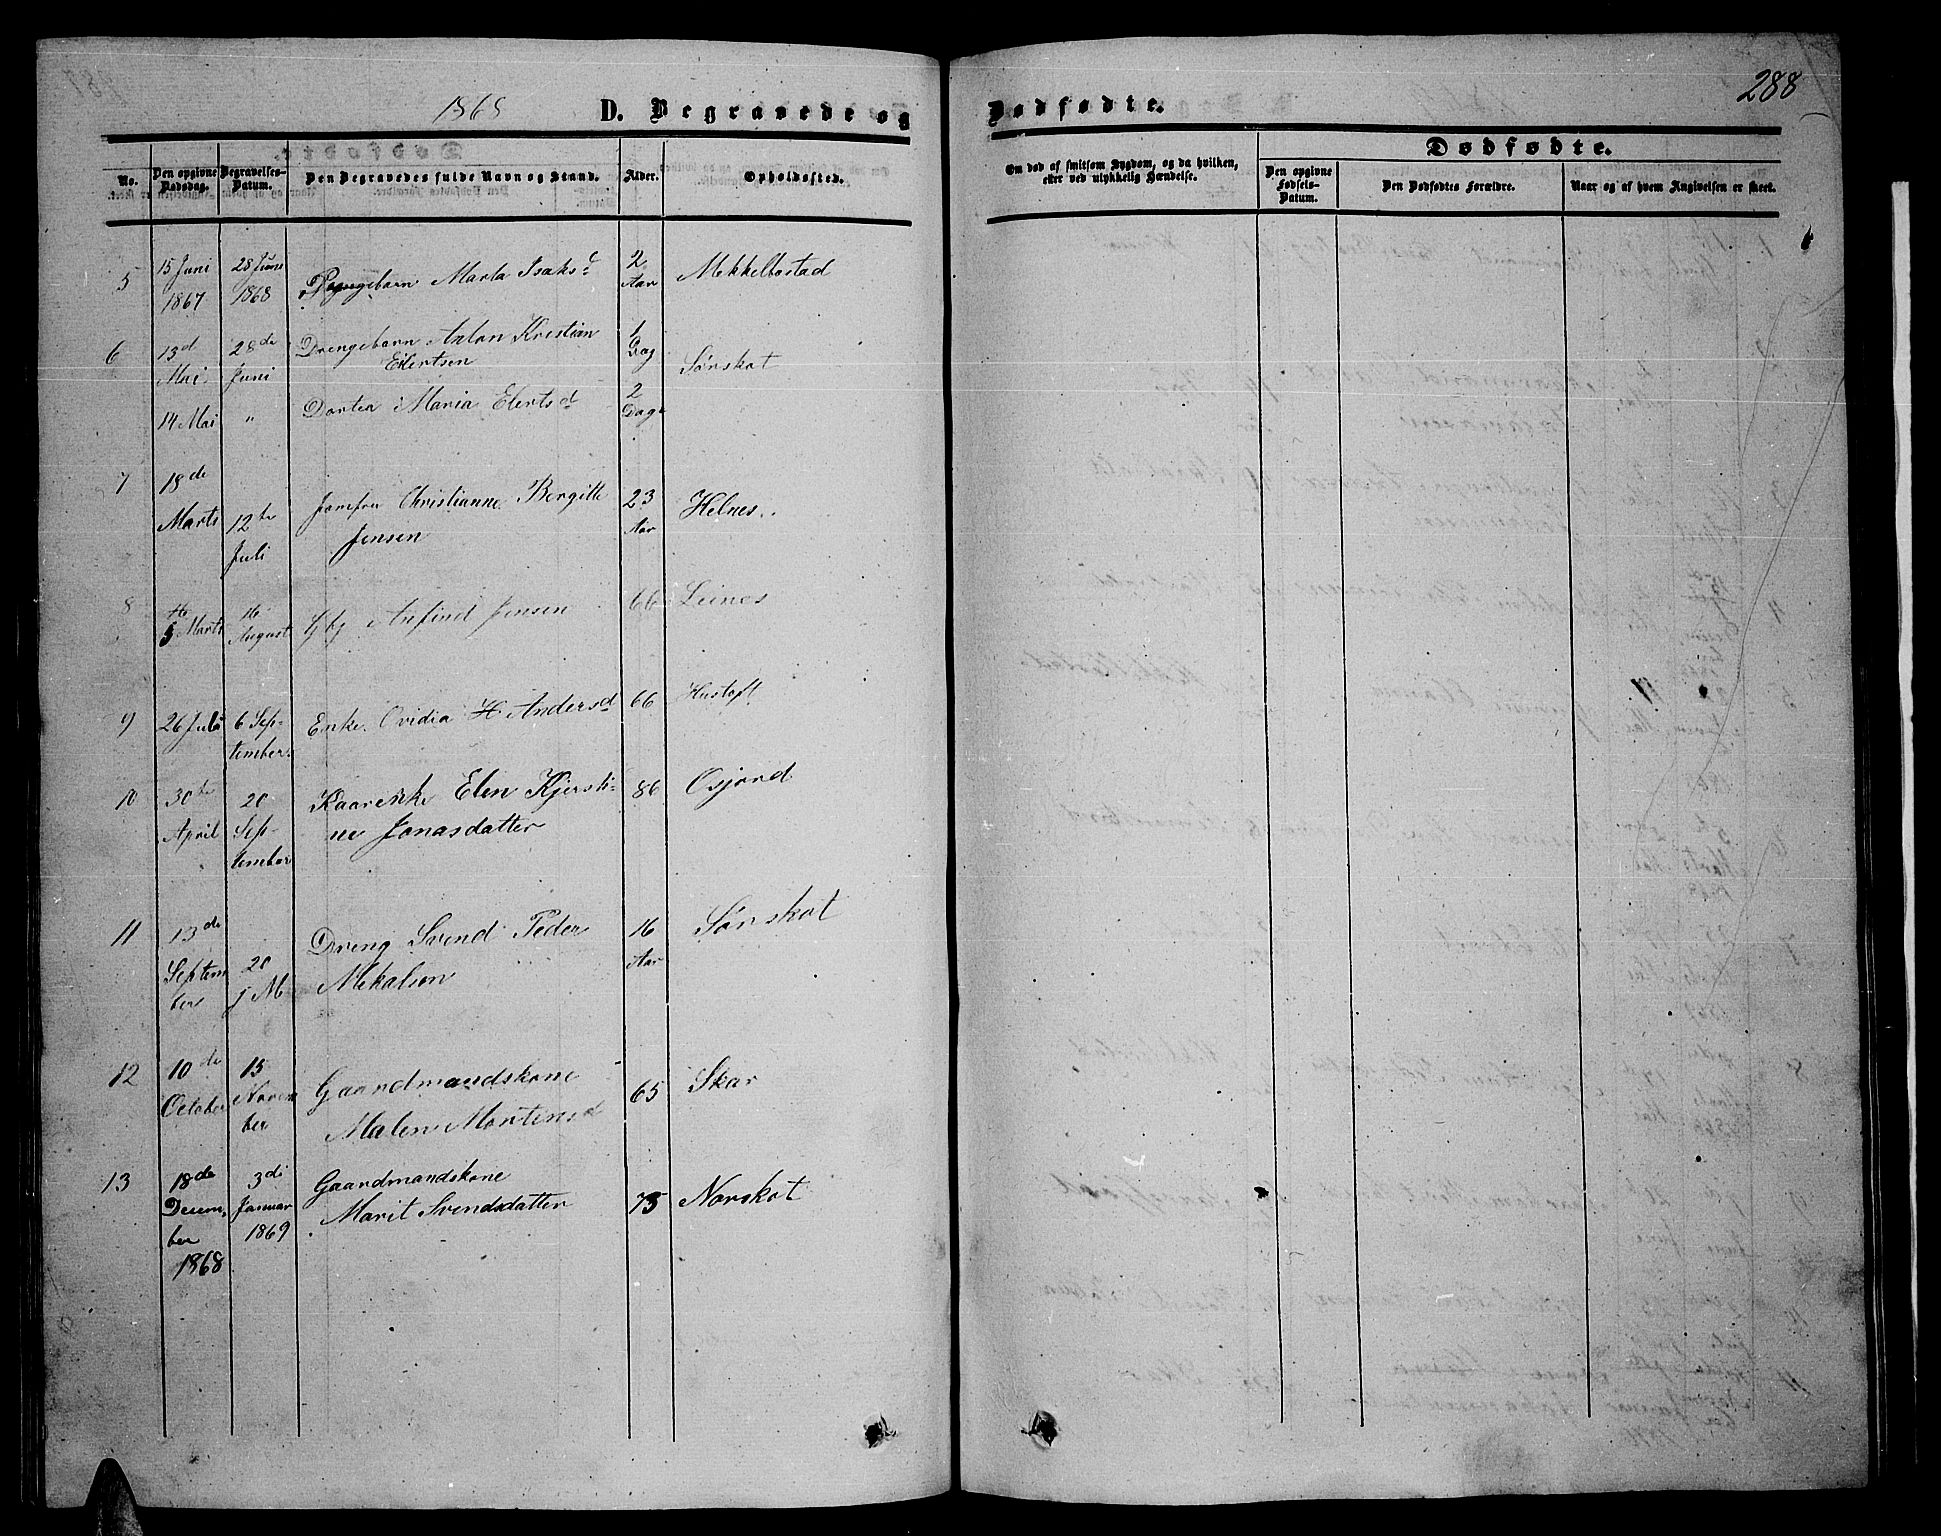 288
1868 D. Begravede og Dødfødte.
No. Den opgivne Dødsdag. Begravelses-Datum. Den Begravedes fulde Navn og Stand. Alder. Opholdssted.
Om død af smitsom Sygdom, og da hvilken, eller ved ulykkelig Hændelse.
Dødfødte.
Den opgivne Fødsels-Datum. Den Dødfødtes Forældre. Naar og af hvem Angivelsen er skeet.
5 15 Juni 1867 28 Juni 1868 Pigebarn Marta Isaksd 2 Aar Mekkelbostad
6 13d Mai 28de Juni Drengebarn Anton Kristian Elertsen 1 Dag Sørskot
14 Mai " Dortea Maria Elertsd 2 Dage
7 18de Marts 12te Juli Jomfru Christianne Bergitte Jensen 23 Aar Helnes
8 5 Marts 16 August Gbg Anfind Jensen 66 Leines
9 26 Juli 6 September Enke Ovidia H Andersd 66 Hustoft
10 30te April 20 September Kaarenke Elen Kjerstine Jonasdatter 86 Osjord
11 13de September 20 j M Dreng Svend Peder Mekalsen 16 Aar Sørskot
12 10de October 15 November Gaardmandskone Malen Mortensd 65 Skar
13 18de December 1868 3di Januar 1869 Gaardmandskone Marit Svendsdatter 75 Norskot